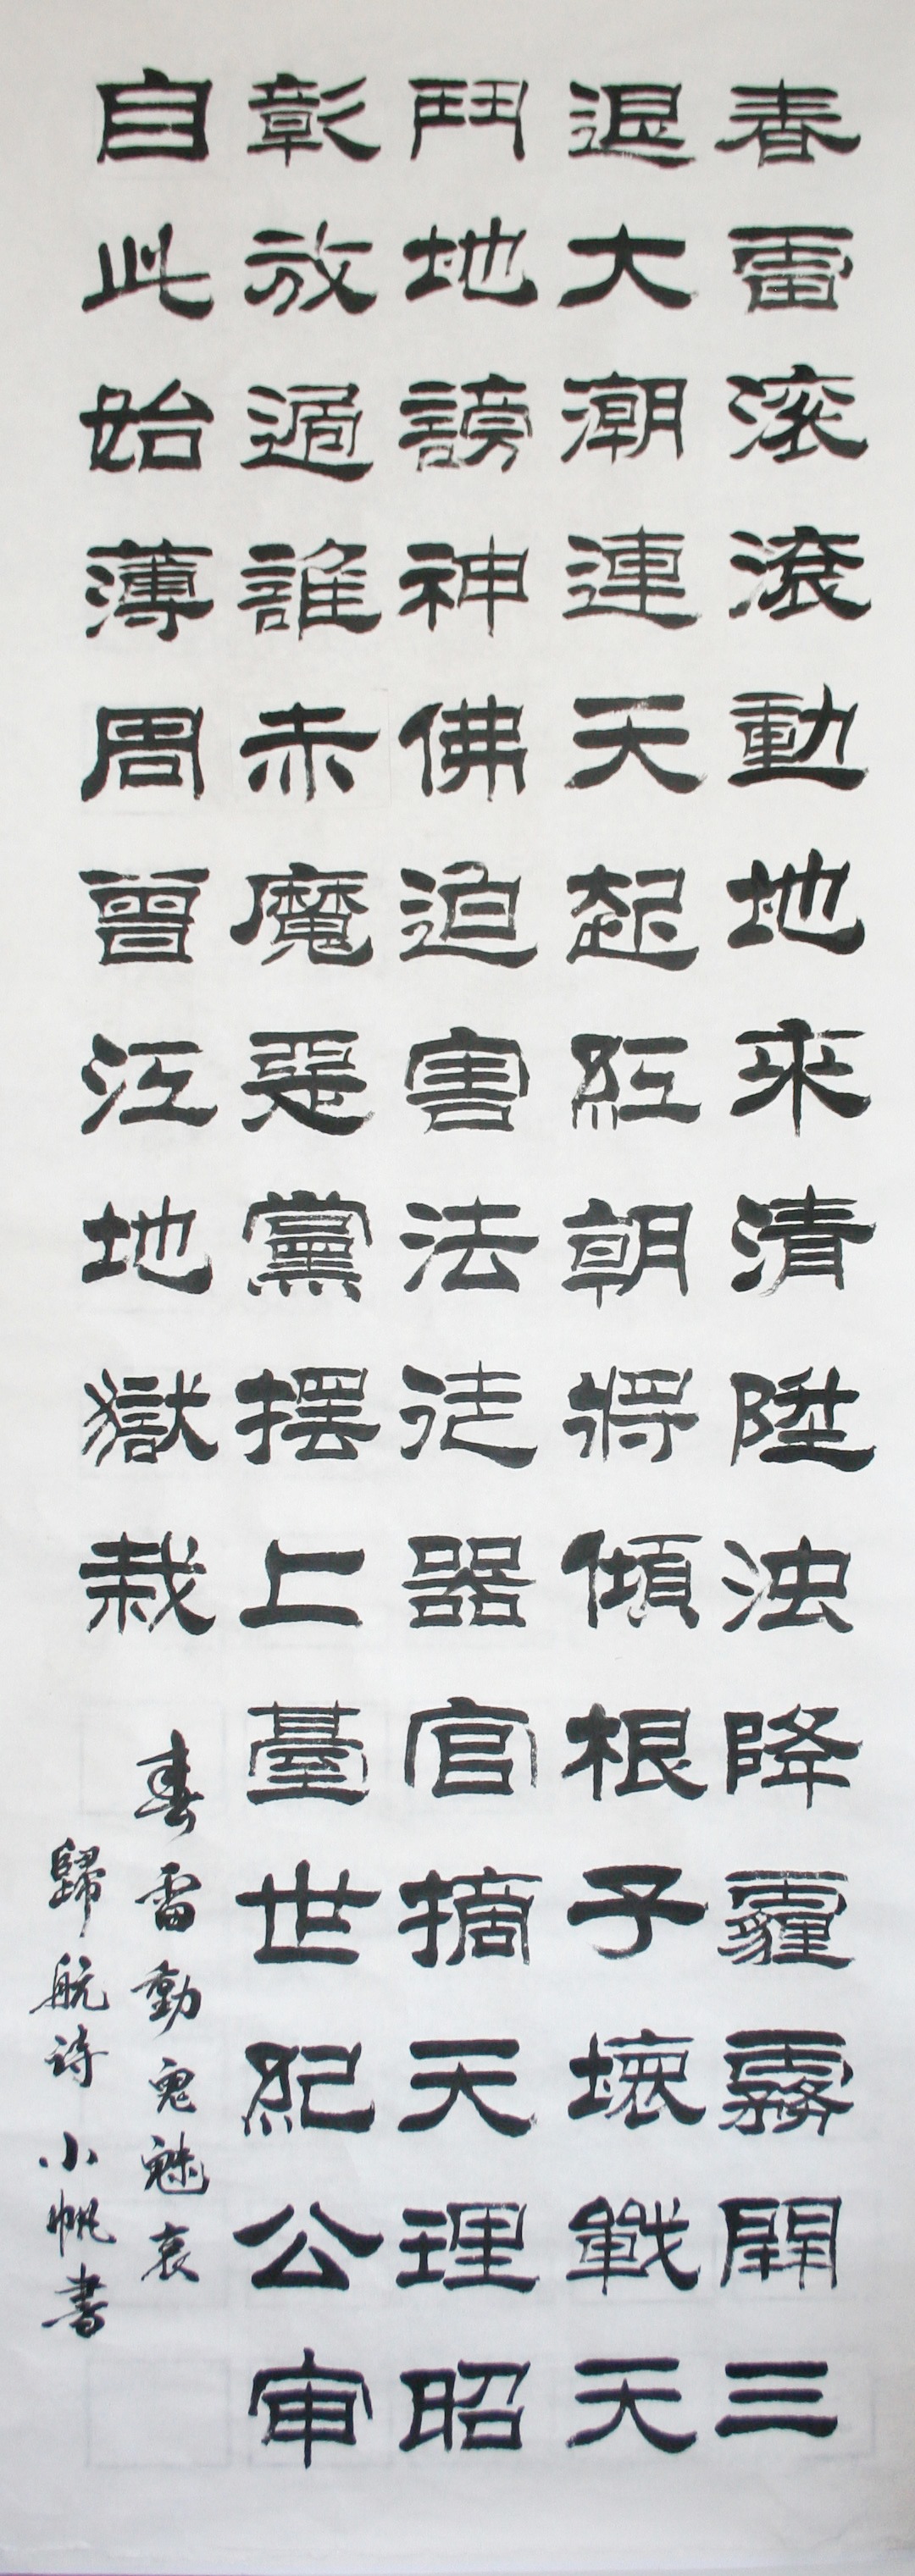 春雷滚滚動地來清陞浊降霾霧開三
退大潮連天起紅朝將傾根子壞戰天
鬥地謗神佛迫害法徒器官摘天理昭
彰放過誰赤魔惡黨摆上臺世紀公审
自此始薄周曾江地獄栽
春雷動鬼魅哀
歸航詩小帆書